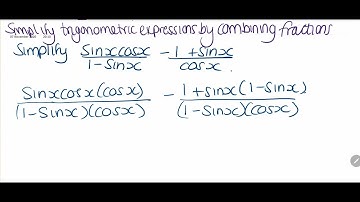 Simplify trigonometric expressions by combining fractions
Simplify sinxcosx/1-sinx - 1+sinx/cosx
sinxcosx(cosx)/(1-sinx)(cosx) - 1+sinx(1-sinx)/(1-sinx)(cosx)